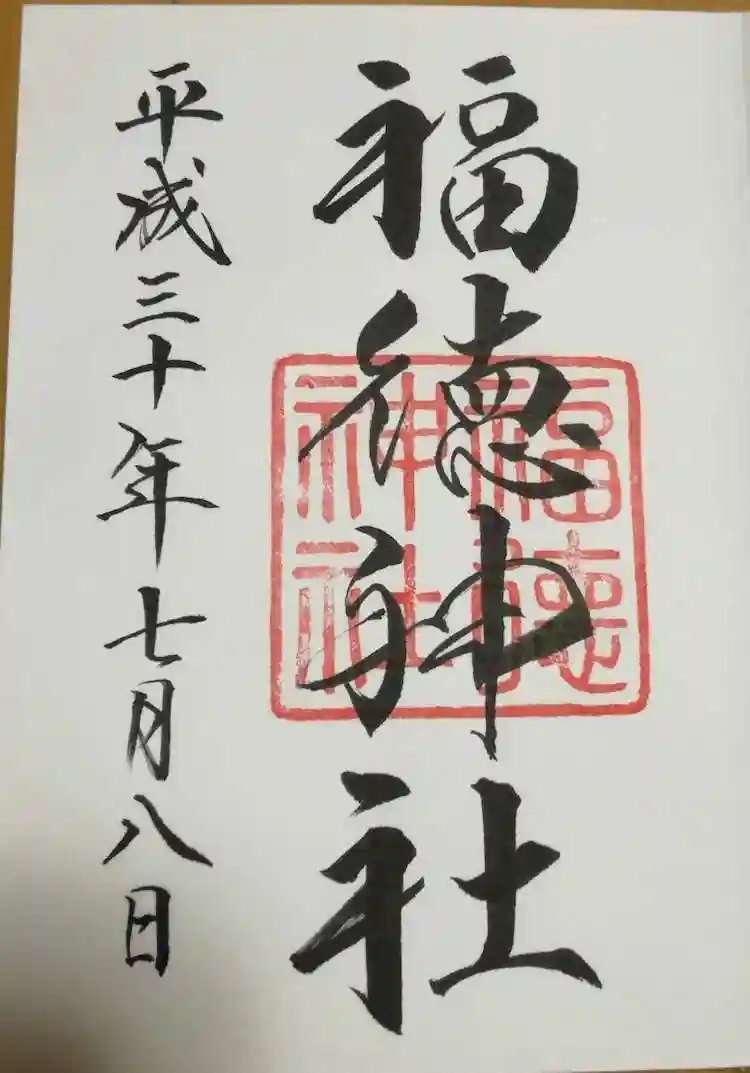 福徳神社
福徳
神社
平成三十年七月八日